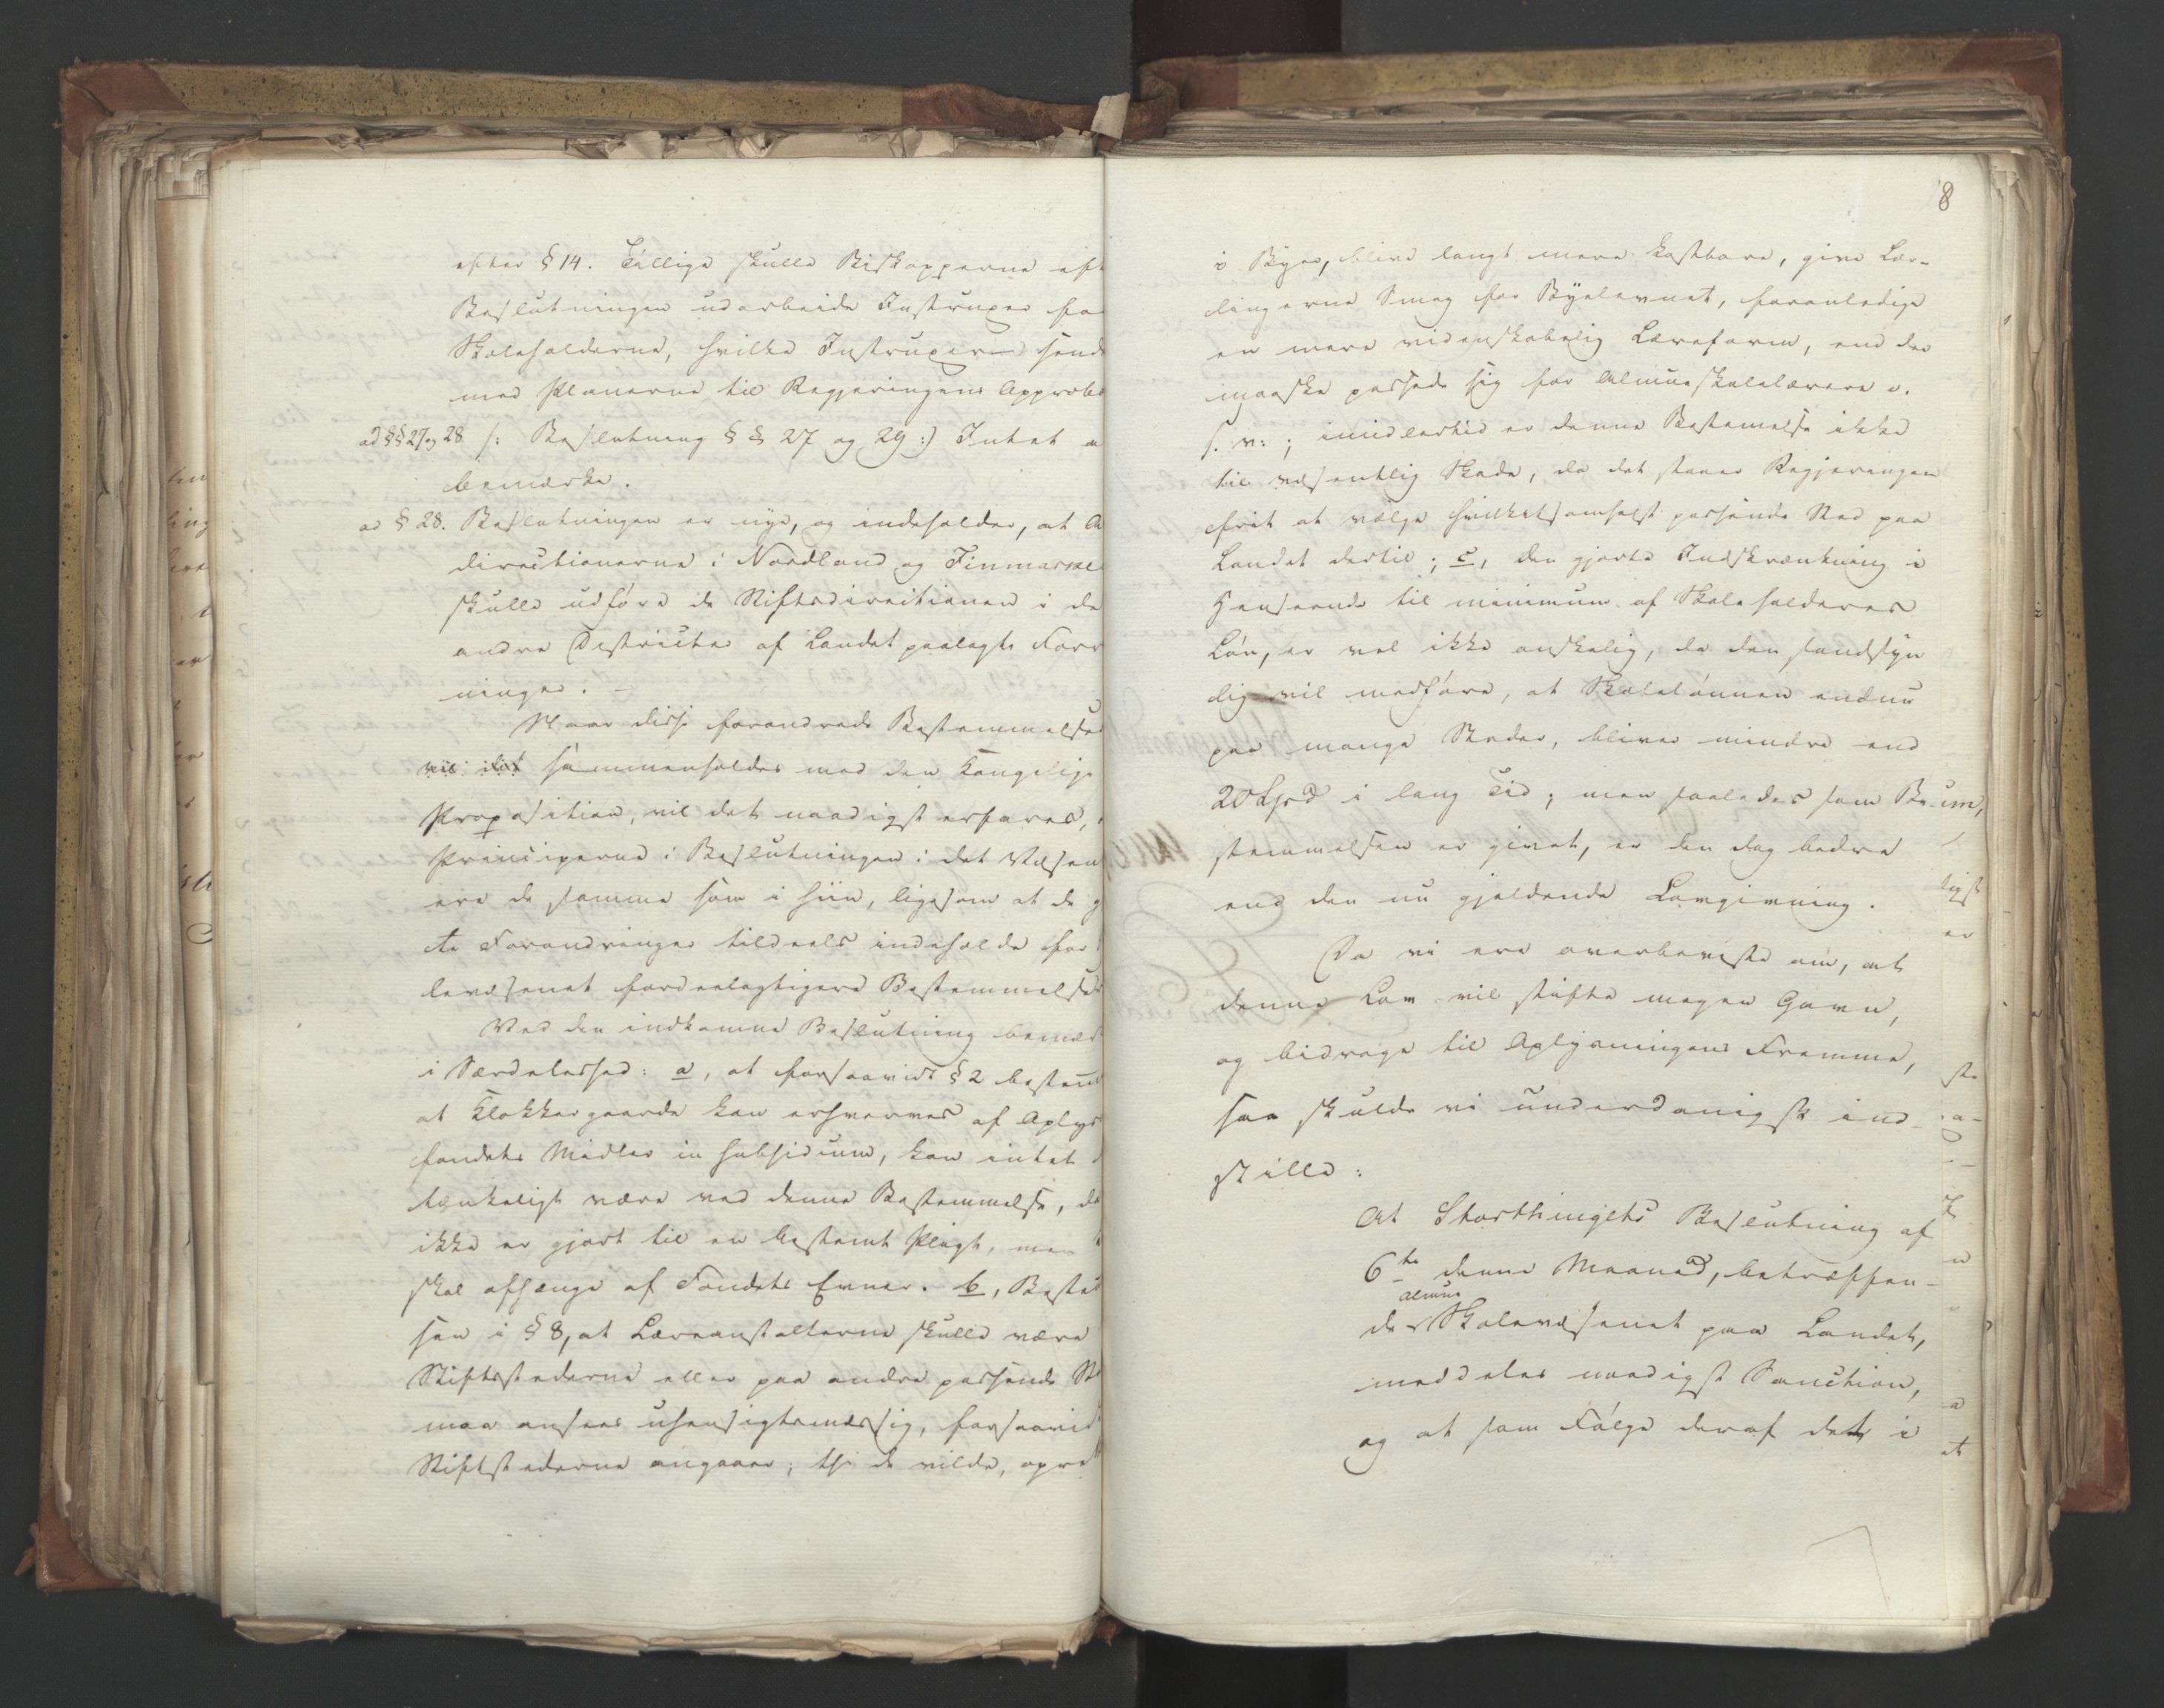 efter § 14. Tillige skulle Biskopperne eft
Beslutningen udarbeide Instruxer fo
Skoleholderne, hvilke Instruxer sende
med Planerne til Regjeringens Approba
ad §§ 27 og 28 /: Beslutning §§ 27 og 29 :/ Intet a
bemærke.
ad § 28. Beslutningen er nye, og indeholder, at A
directionerne i Nordland og Finmarke
skulle udføre de Stiftsdirectionen i de
andre Districter af Landet paalagte Forr
ninger. –
Naar disse forandrede Bestemmelser
sammenholdes med den Kongelige
Proposition, vil det naadigst erfares,
Principerne i Beslutningen i det Væsen
ere de samme som i hiin, ligesom at de g
te Forandringer tildeels indeholde for
levæsenet fordeelagtigere Bestemmelser
Ved den indkomne Beslutning bemær
i Særdeleshed: a, at forsaavidt § 2 bestem
at Klokkergaarde kan erhverves af Oplys
fondets Midler in subsidium, kan intet
tænkeligt være ved denne Bestemmelse, da
ikke er gjort til en bestemt Pligt, men
skal afhænge af Fondets Evner. b, Beste
sen i § 8, at Læreanstalterne skulle være
Stiftsstæderne eller paa andre passende St
maa ansees uhensigtsmæssig, forsaavid
Stiftsstæderne angaaer; thi de vilde, opre
8
i Byer, blive langt mere kostbare, give Lær-
lingerne Smag for Byelevnet, foranledige
en mere videnskabelig Læreform, end der
maaske passede sig for Almueskolelærere o.
s. v.; imidlertid er denne Bestemelse ikke
til væsentlig Skade, da det staaer Regjeringen
frit at vælge hvilketsomhelst passende Sted paa
Landet dertil; c, den gjorte Indskrænkning i
Henseende til minimum af Skoleholderes
Løn, er vel ikke ønskelig, da den sandsyn
lig vil medføre, at Skolelønnen endnu
paa mange Steder, bliver mindre end
20 Spd i lang Tid; men saaledes som Be-
stemmelsen er givet, er den dog bedre
end den nu gjeldende Lovgivning.
Da vi ere overbeviste om, at
denne Lov vil stifte megen Gavn,
og bidrage til Oplysningens Fremme,
saa skulde vi underdanigst ind-
stille:
At Storthingets Beslutning af
6te denne Maaned, betræffen-
almue
de Skolevæsenet paa Landet,
meddeles naadigst Sanction,
og at som Følge deraf det i